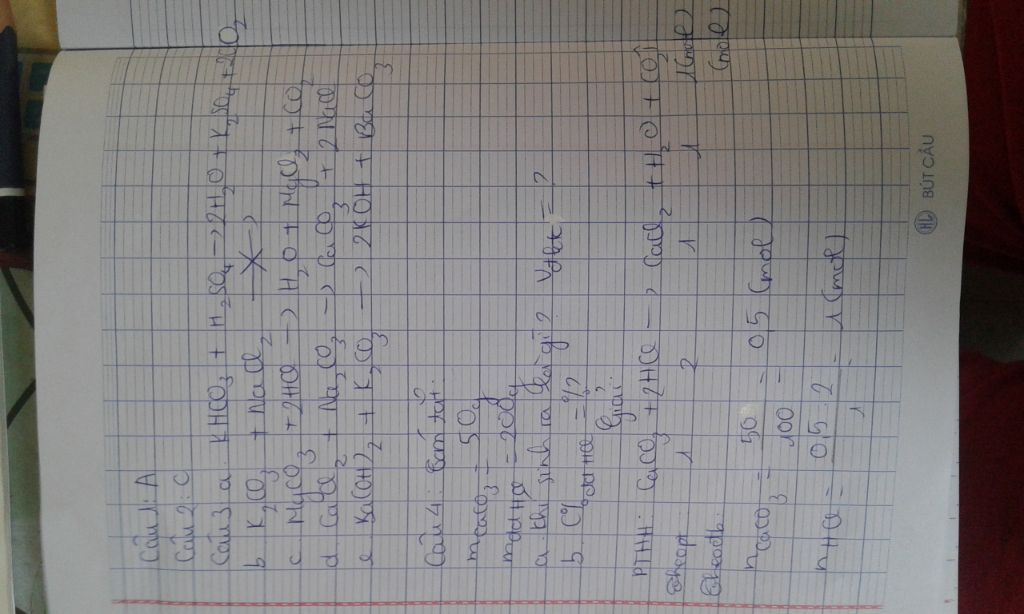 Câu 1: A
Câu 2: C
Câu 3 a. KHCO3 + H2SO4 → 2H2O + K2SO4 + 2CO2
b K2CO3 + NaCl2 —X→
c. MgCO3 + 2HCl → H2O + MgCl2 + CO2
d. CaCl2 + Na2CO3 → CaCO3 + 2NaCl
e Ba(OH)2 + K2CO3 → 2KOH + BaCO3
Câu 4: Tóm tắt:
mCaCO3 = 50g
mddHCl = 200g
a. khí sinh ra gì? Vđktc = ?
b. C%ddHCl = ?
Giải:
PTHH: CaCO3 + 2HCl → CaCl2 + H2O + CO2↑
Theo pt 1 2 1 1 1(mol)
Theo đb: (mol)
nCaCO3 = 50 / 100 = 0,5 (mol)
nHCl = 0,5 . 2 / 1 = 1 (mol)
HL BÚT CÂU